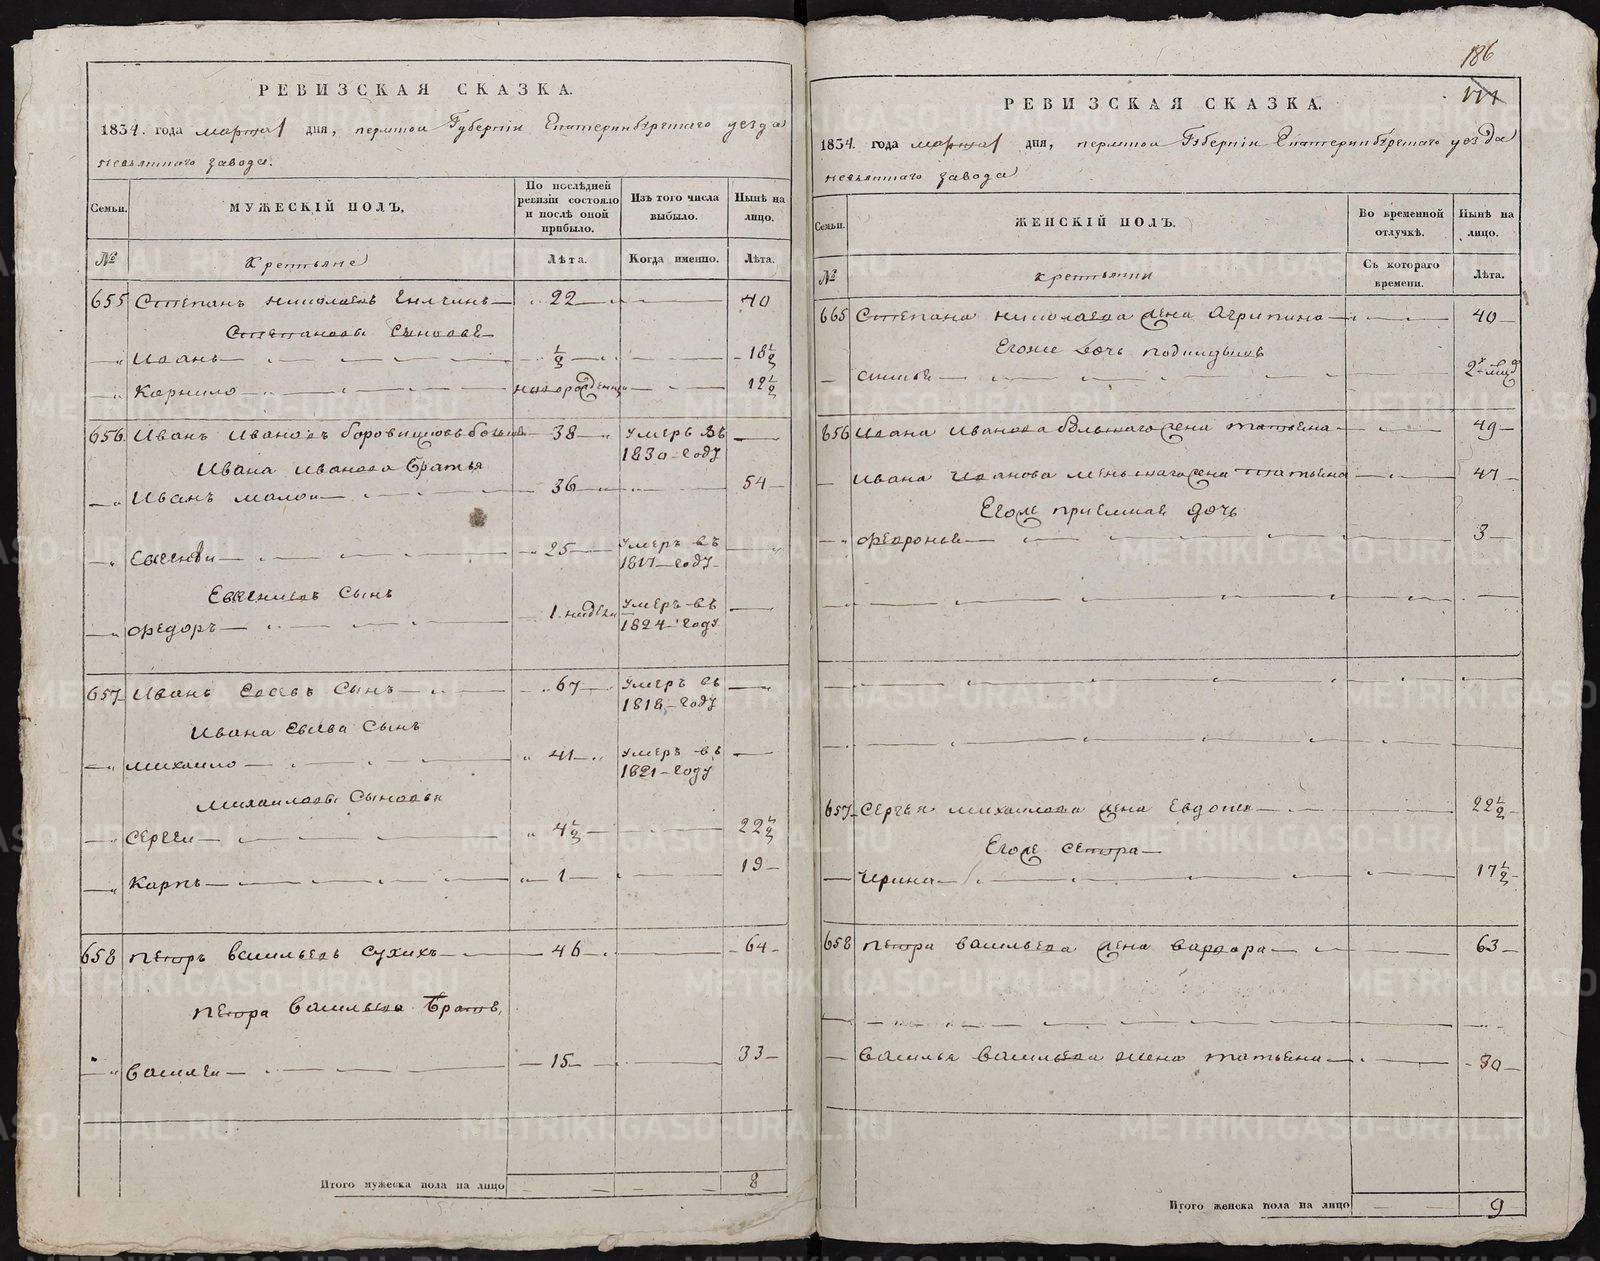 РЕВИЗСКАЯ СКАЗКА.
1834. года марта 1 дня, пермской Губернiи Екатеринбургского уезда
невьянского завода.
Семьи. МУЖЕСКIЙ ПОЛЪ. По послѣдней ревизiи состояло и послѣ оной прибыло. Изъ того числа выбыло. Нынѣ на лицо.
№ Крестьяне Лѣта. Когда именно. Лѣта.
655 Степанъ николаевъ 22 40
Степановы Сыновья
Иванъ ½ 18½
Корнило новорожденный 12½
656 Иванъ Ивановъ боровиковъ большой 38 Умеръ въ 1830 году
Ивана Иванова братья
Иванъ малой 36 54
Евсений 25 Умеръ въ 1817 году
Евсениевъ Сынъ
Федоръ 1 недели Умеръ въ 1824 году
657 Иванъ Сынъ 67 Умеръ въ 1818 году
Ивана Сынъ
михаило 41 Умеръ въ 1821 году
Михайловы Сыновья
Сергеи 4½ 22½
Карпъ 1 19
658 петръ васильевъ Сухихъ 46 64
петра васильева братъ
василеи 15 33
Итого мужеска пола на лицо 8
186
РЕВИЗСКАЯ СКАЗКА.
1834. года марта 1 дня, пермской Губернiи Екатеринбургского уезда
невьянского завода
Семьи. ЖЕНСКIЙ ПОЛЪ. Во временной отлучкѣ. Нынѣ на лицо.
№ крестьянки Съ котораго времени. Лѣта.
665 Степана николаева жена Агрипина 40
Егоже дочь
2
656 Ивана Иванова большаго жена татьяна 49
Ивана Иванова меньшаго жена татьяна 47
Его же приемная дочь
Феоронья 3
657 Сергея михаилова жена Евдокея 22½
Его же сестра
Ирина 17½
658 петра васильева жена варвара 63
василья васильева жена татьяна 30
Итого женска пола на лицо 9